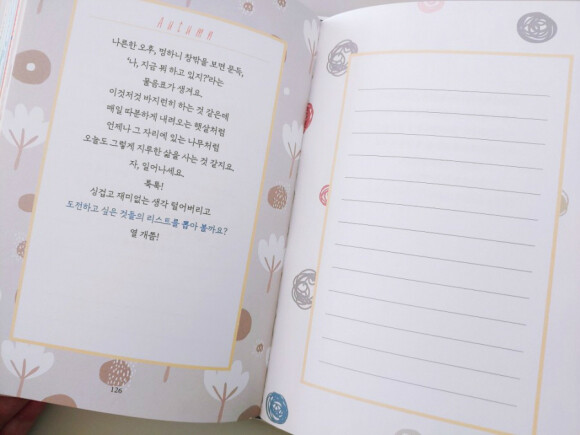 Autumn
나른한 오후, 멍하니 창밖을 보면 문득,
'나, 지금 뭐 하고 있지?'라는
물음표가 생겨요.
이것저것 바지런히 하는 것 같은데
매일 따분하게 내려오는 햇살처럼
언제나 그 자리에 있는 나무처럼
오늘도 그렇게 지루한 삶을 사는 것 같지요.
자, 일어나세요.
톡톡!
싱겁고 재미없는 생각 털어버리고
도전하고 싶은 것들의 리스트를 뽑아 볼까요?
열 개쯤!
126